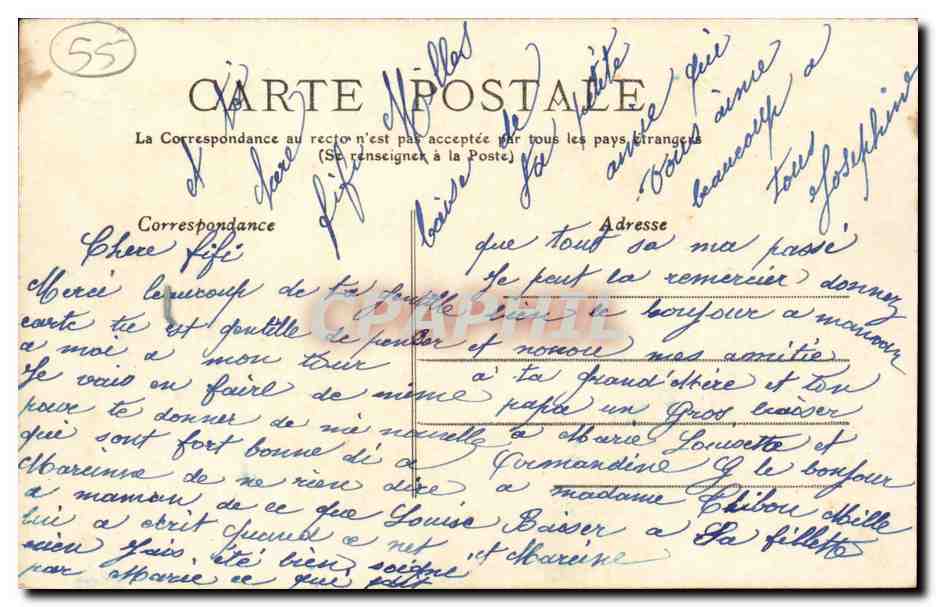 55
CARTE POSTALE
La Correspondance au recto n'est pas acceptée par tous les pays étrangers
(Se renseigner à la Poste)
Correspondance
Adresse
Chere fifi
Merci beaucoup de ta gentille
carte tu est gentille de penser
a moi a mon tour
Je vais en faire de même
pour te donner de mé nouvelle
qui sont fort bonne di a
de ne rien dire
a maman de ce que Louise
lui a ecrit quand
rien Jais été bien soigné
par Marie ce qui fait
que tout sa ma passé
Je peut la remercier donnez
bien le bonjour a
et nonou mes amitié
a ta Grand Mère et ton
papa un Gros baiser
a Marie Louisette et
Armandine le bonjour
a madame Chibou Mille
Baiser a La fillette
et
fifi Milles
baise de
Sa petite
amie qui
Vous aime
beaucoup a
tous
Josephine
CPAPHIL